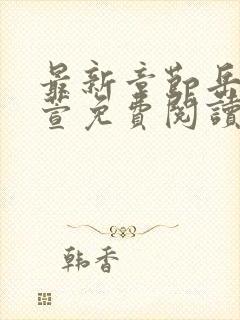 最新章節岳
萱免費閱讀
韩香